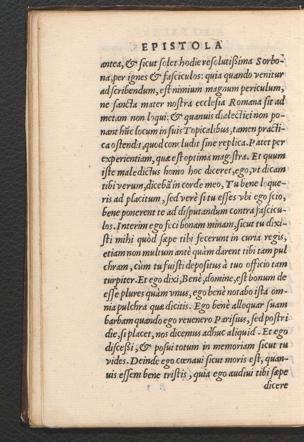 EPISTOLA
antea, & sicut solet hodie resolutißima Sorbo-
na, per ignes & fasciculos: quia quando venitur
ad scribendum, est nimium magnum periculum,
ne sancta mater nostra ecclesia Romana sit ad
metam non loqui: & quamuis dialectici non po-
nant hũc locum in suis Topicalibus, tamen practi-
ca ostendit, quod concludit sine replica. Patet per
experientiam, quæ est optima magistra. Et quum
iste maledictus homo hoc diceret, ego, vt dicam
tibi verum, dicebã in corde meo, Tu bene loque-
ris ad placitum, sed verè si tu esses vbi ego scio,
bene ponerent te ad disputandum contra fascicu-
los. Interim ego feci bonam minam, sicut tu dixi-
sti mihi quòd sæpe tibi fecerunt in curia regis,
etiam non multum antè quàm darent tibi tam pul
chram, cùm tu fuisti depositus à tuo officio tam
turpiter. Et ego dixi, Bene, domine, est bonum de
esse plures quàm vnus, ego bene notabo ista om-
nia pulchra quæ dicitis. Ego bene alloquar suam
barbam quando ego reuenero Parisius, sed postri
die, si placet, nos dicemus adhuc aliquid. Et ego
discessi, & posui totum in memoriam sicut tu
vides. Deinde ego cœnaui sicut moris est, quan-
uis essem bene tristis, quia ego audiui tibi sæpe
dicere